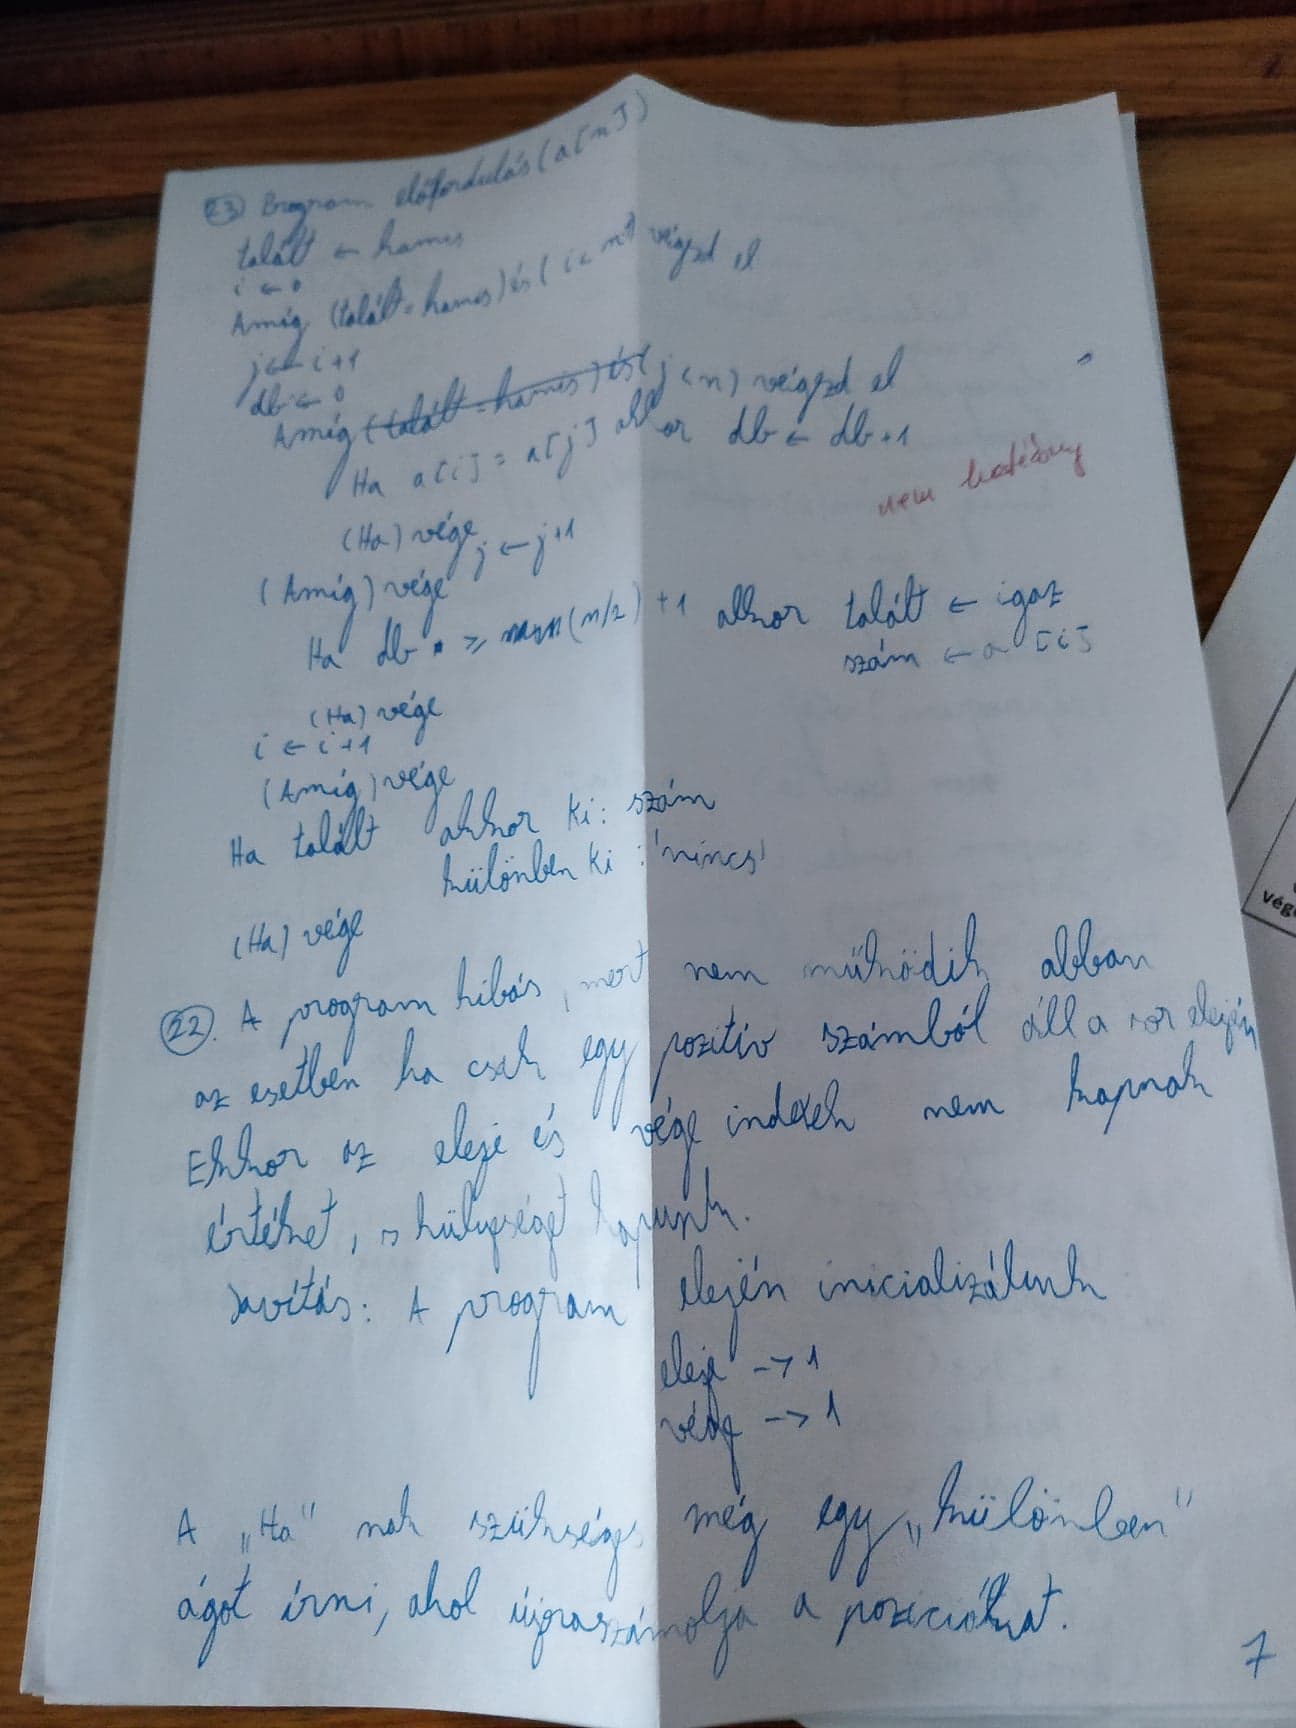 23 Program előfordulás (a[n])
talált ← hamis
i ← 0
Amíg (talált = hamis) és (i < n) végezd el
j ← i+1
db ← 0
Amíg (talált = hamis) és (j < n) végezd el
Ha a[i] = a[j] akkor db ← db+1
nem hatékony
(Ha) vége
j ← j+1
(Amíg) vége
Ha db ≥ (n/2) +1 akkor talált ← igaz
szám ← a[i]
(Ha) vége
i ← i+1
(Amíg) vége
Ha talált akkor ki: szám
különben ki: 'nincs'
(Ha) vége
22. A program hibás, mert nem működik abban
az esetben ha csak egy pozitív számból áll a sor elején
Ekkor az eleje és vége indexek nem kapnak
értéket, s hülyeséget kapunk.
Javítás: A program elején inicializálunk
eleje -> 1
vége -> 1
A „Ha" nak szükséges még egy „különben"
ágot írni, ahol újraszámolja a pozíciókat.
7
Vég